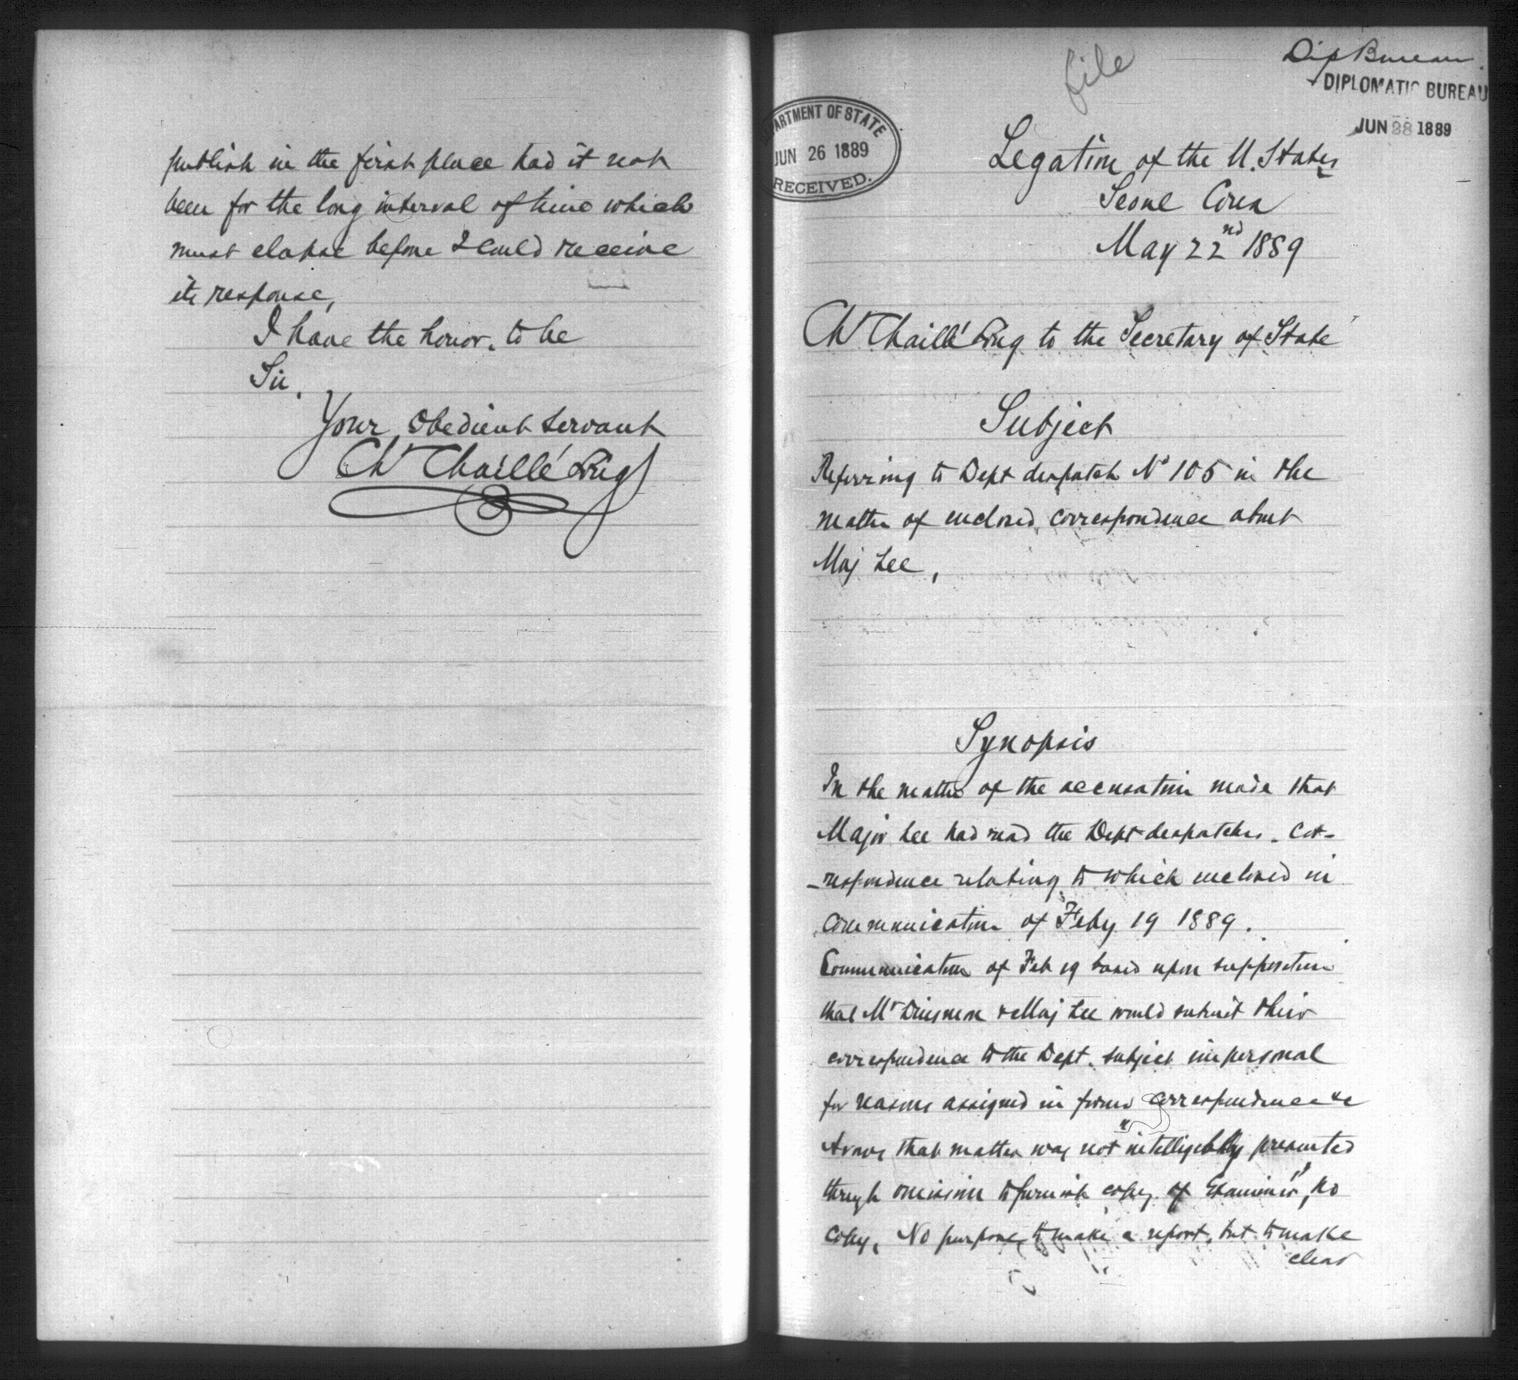 publish in the first place had it not
been for the long interval of time which
must elapse before I could receive
its response,
I have the honor, to be
Sir.
Your obedient servant
Ch Chaillé Long
file
Dip Bureau.
DIPLOMATIC BUREAU
JUN 28 1889
DEPARTMENT OF STATE
JUN 26 1889
RECEIVED.
Legation of the U. States
Seoul Corea
May 22nd 1889
Ch Chaillé Long to the Secretary of State
Subject
Referring to Dept despatch No 105 in the
matter of enclosed correspondence about
Maj Lee,
Synopsis
In the matter of the accusation made that
Major Lee had read the Dept despatches. Cor-
-respondence relating to which enclosed in
communication of Feby 19 1889.
Communication of Feb 19 based upon supposition
that Mr Dinsmore & Maj Lee would submit their
correspondence to the Dept. subject impersonal
for reasons assigned in former correspondence &c
that matter was not intelligibly presented
through omission to furnish copy of Examiner, no
copy. No purpose to make a report, but to make
clear